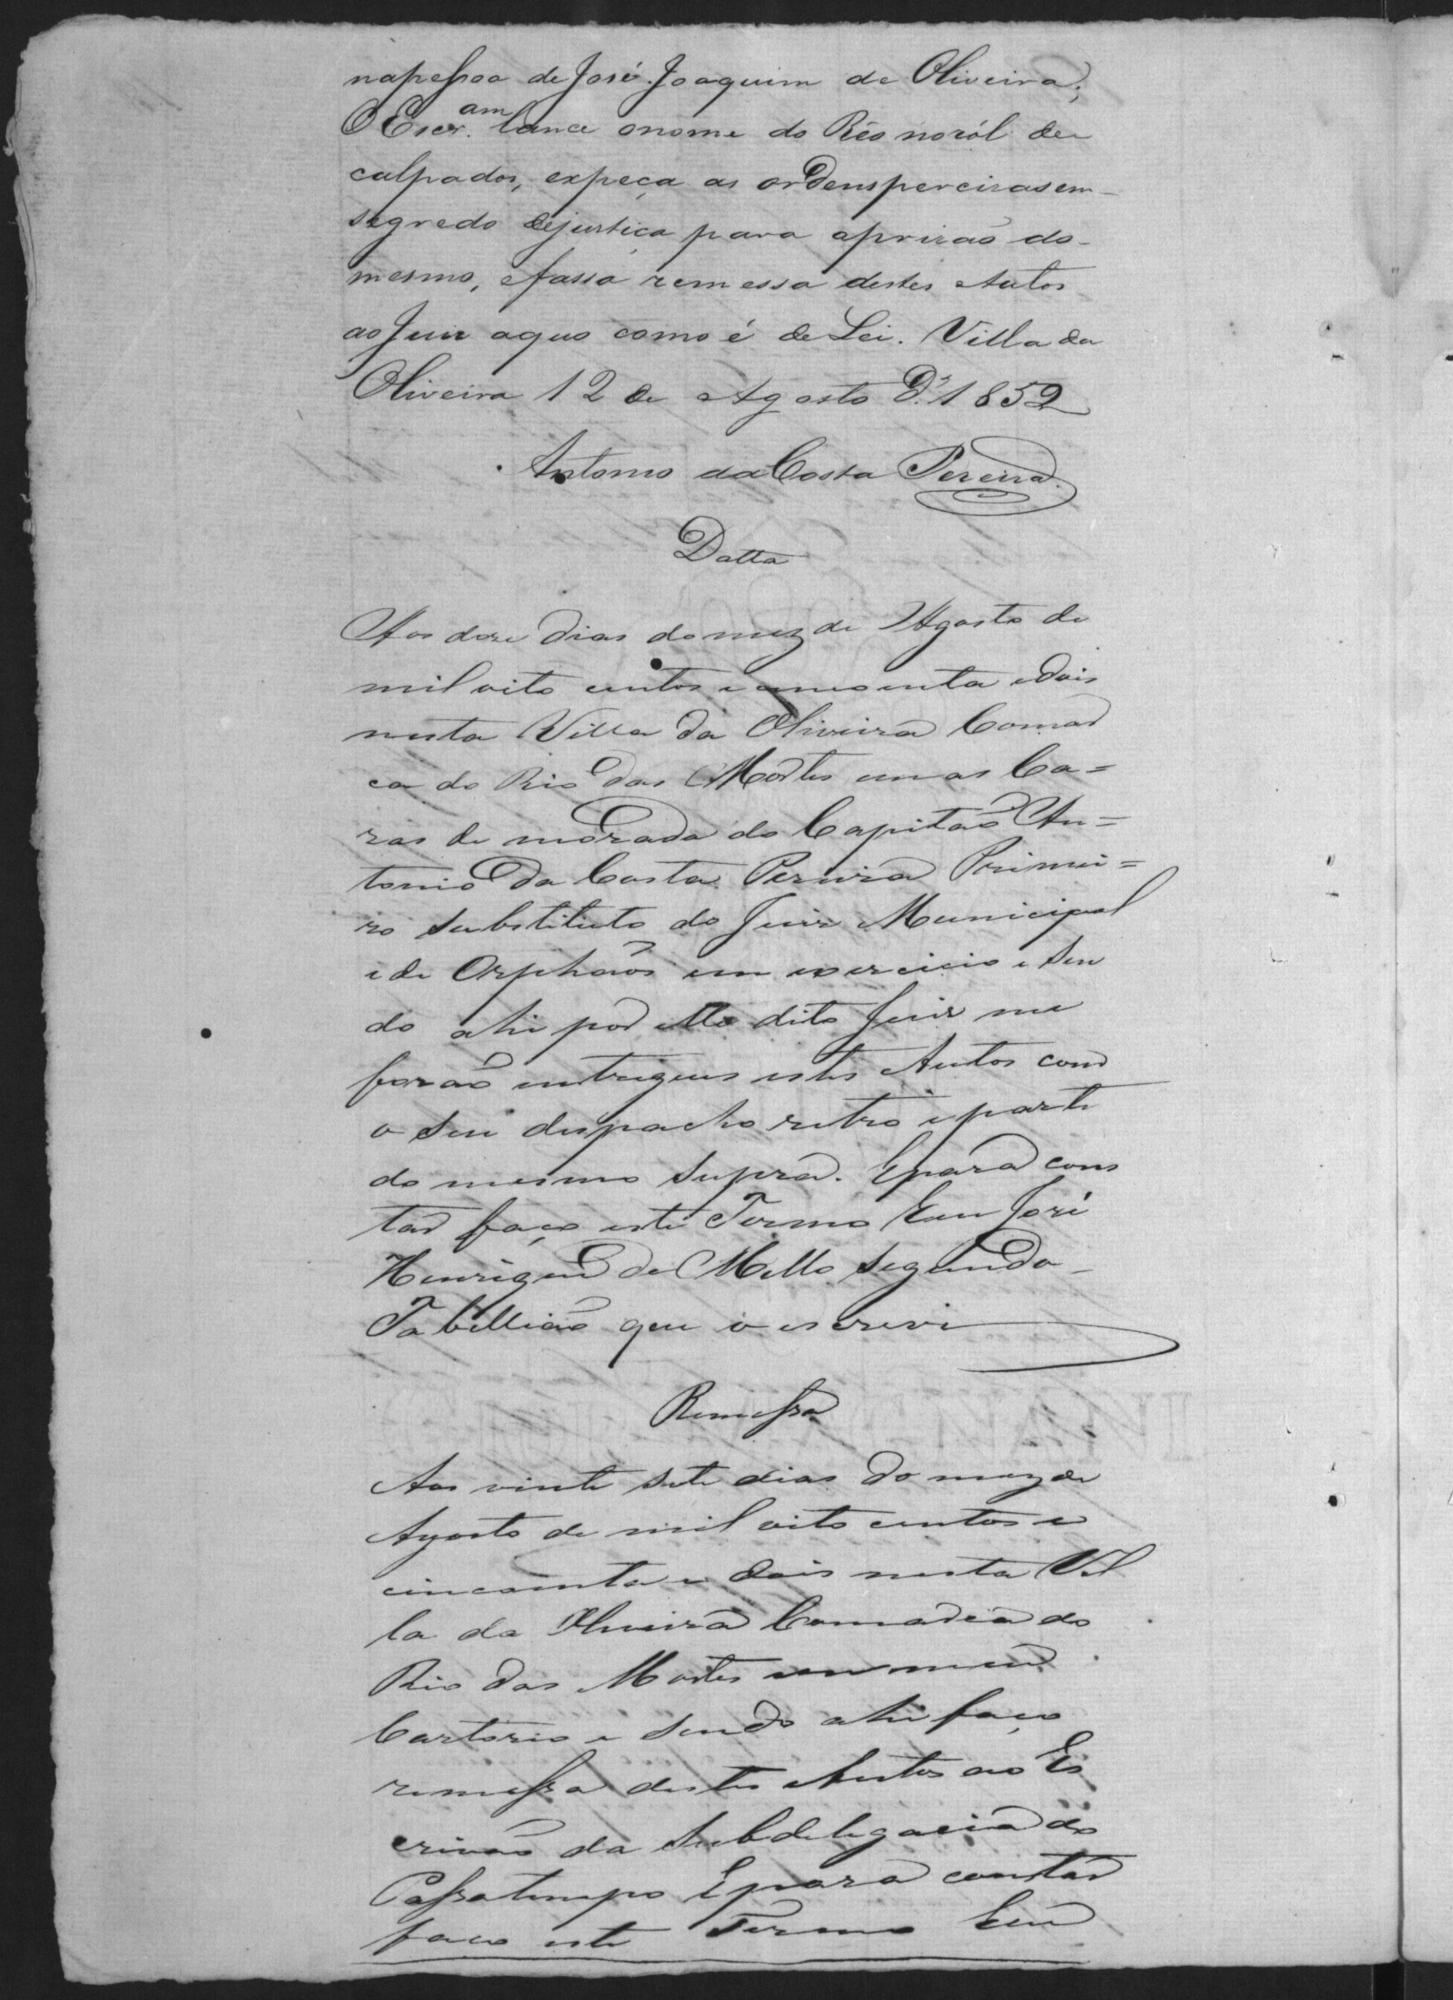 napessoa de José Joaquim de Oliveira;
O Escr.am lance onome do Réo noról de
culpados, expeça as ordenspercizasem
segredo dejustiça para aprizaõ do
mesmo, efassa remessa destes Autos
ao Juiz aquo como é de Lei. Villa da
Oliveira 12 de Agosto D. 1852
Antonio da Costa Pereira.
Datta
Aos doze dias do mez de Agosto de
mil oito centos e cincoenta edois
nesta Villa da Oliveira Comar
ca do Rio das Mortes em as Ca=
zas de morada do Capitaõ An=
tonio da Costa Pereira Primei=
ro substituto do Juiz Municipal
e de Orphaõs em exercicio e sen
do ahi por elle dito Juiz me
foraõ entregues estes Autos com
o seu despacho retro e parte
do mesmo supra. Epara cons
tar faço este Termo Eu José
Henrique de Mello segundo
Tabelliaõ que o escrevi
Remessa
Aos vinte sete dias do mez de
Agosto de mil oito centos e
cincoenta e dois nesta Vil
la da Oliveira Comarca do
Rio das Mortes em meu
Cartorio e sendo ahi faço
remessa destes Autos ao Es
crivaõ da Subdelegacia do
Passatempo Epara constar
faço este Termo Eu